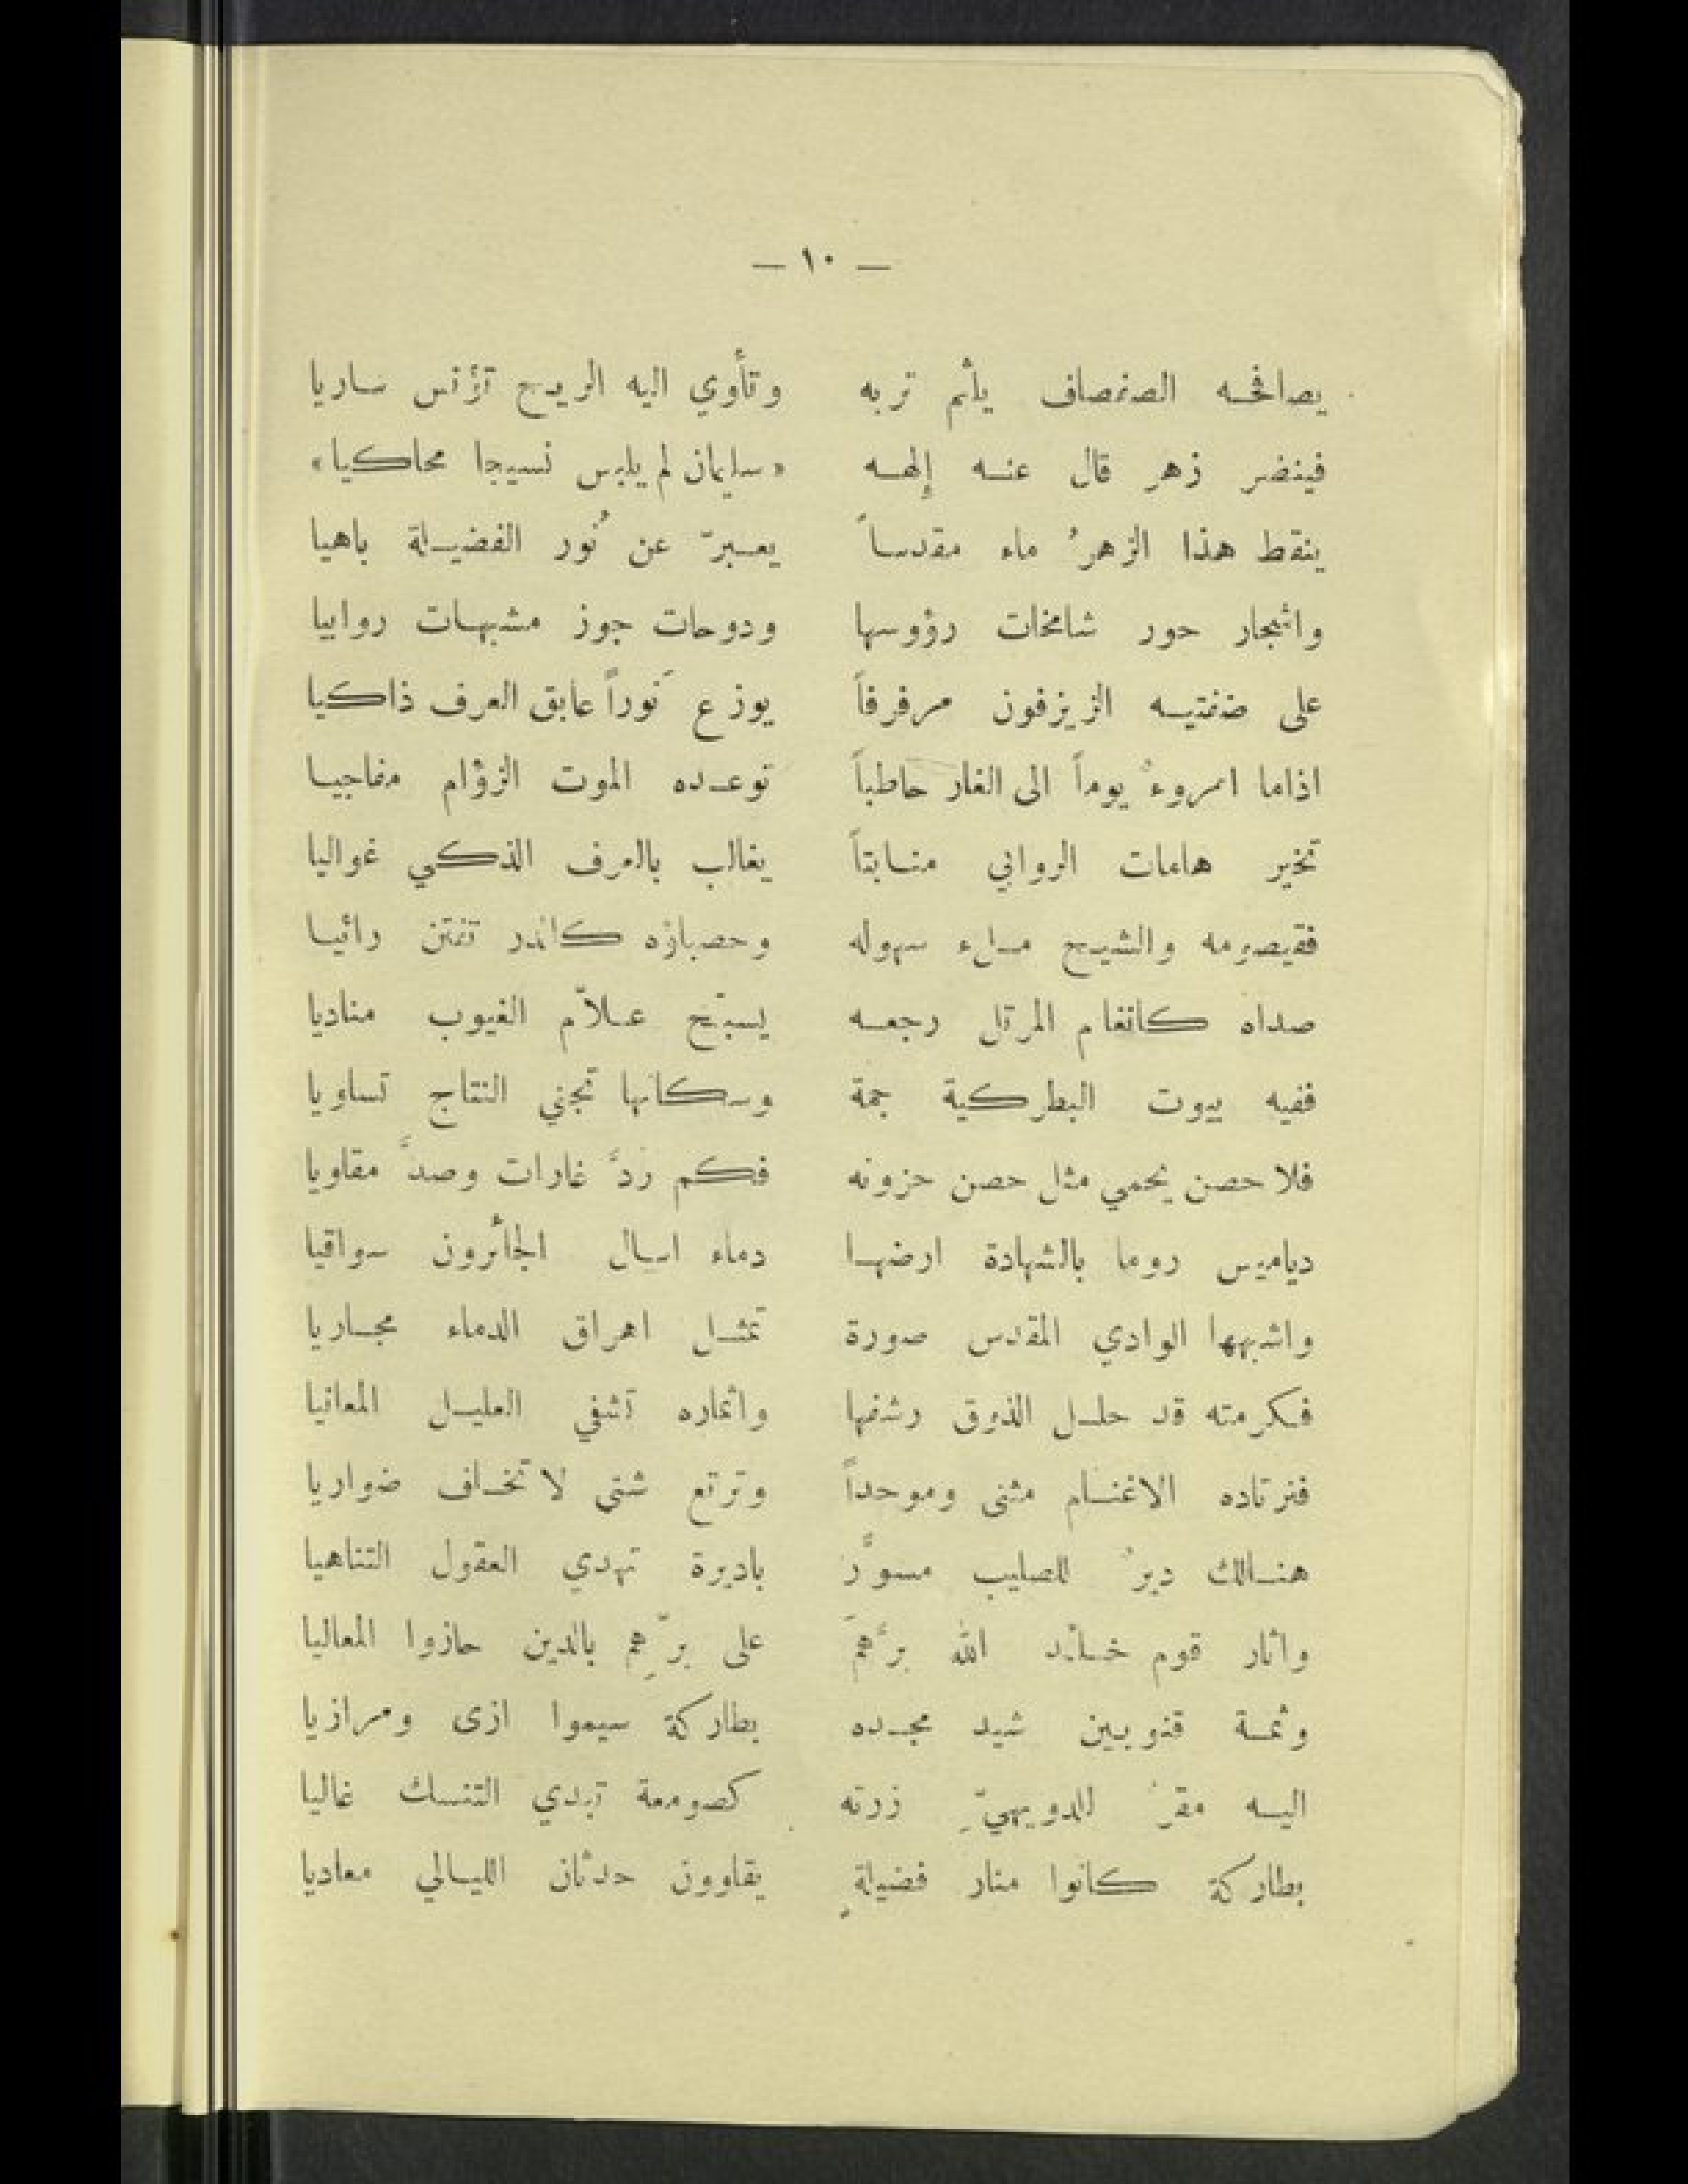 — ١٠ —
يصافحـه الصفصاف يلثم تربه وتأوي اليه الريح تؤنس ساريا
فينضر زهر قال عنـه إلهـه «سليمان لم يلبس نسيجا محاكيا»
ينقط هذا الزهرُ ماء مقدساً يعـبرّ عن نُور الفضيـلة باهيا
واشجار حور شامخات رؤوسها ودوحات جوز مشبهات روابيا
على ضفتيـه الزيزفون مرفرفاً يوزع نَوراً عابق العرف ذاكيا
اذاما امروءُ يوماً الى الغار حاطباً توعـده الموت الزؤام مفاجيـا
تخير هامات الروابي منـابتاً يغالب بالعرف الذكي غواليا
فقيصومه والشيح مـلء سهوله وحصباؤه كالدر تفتن رائيـا
صداه كانغام المرتل رجعـه يسبّح عـلاّم الغيوب مناديا
ففيه بيوت البطركية جمة وسكانها تجني النتاج تساويا
فلا حصن يحمي مثل حصن حزونه فكم ردَّ غارات وصدَّ مقاويا
دياميس روما بالشهادة ارضهـا دماء اسال الجائرون سواقيا
واشبهها الوادي المقدس صورة تمثـل اهراق الدماء مجـاريا
فكرمته قد حلـل الذوق رشفها واثماره تشفي العليـل المعانيا
فترتاده الاغنـام مثنى وموحداً وترتع شتى لا تخـاف ضواريا
هنـالك ديرُ للصليب مسوَّر باديرة تهدي العقول التناهيا
واثار قوم خـلّد الله برَّهمَ على برِّهم بالدين حازوا المعاليا
وثمـة قنوبين شيد مجـده بطاركة سيموا اذى ومرازيا
اليـه مقرُ للدويهيّ زرته كصومعة تبدي التنسك غاليا
بطاركة كانوا منار فضيلةٍ يقاوون حدثان الليـالي معاديا